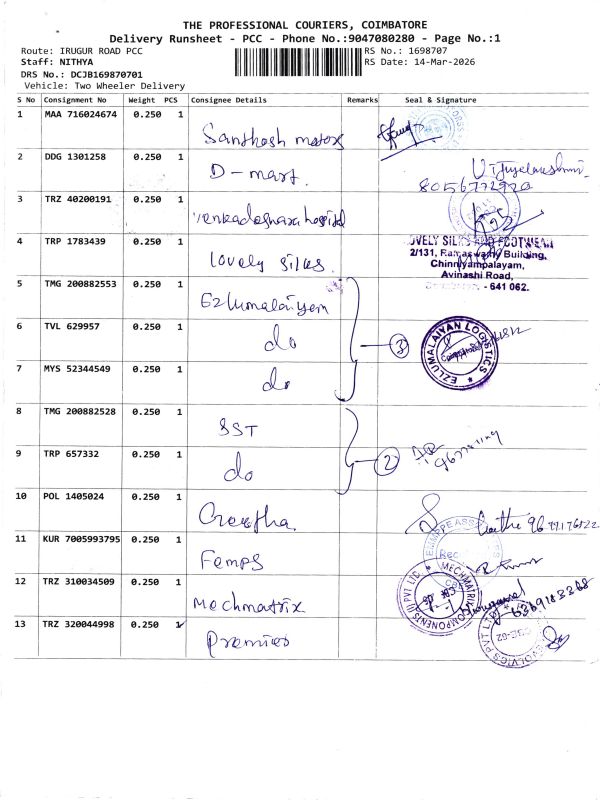 THE PROFESSIONAL COURIERS, COIMBATORE
Delivery Runsheet - PCC - Phone No.:9047080280 - Page No.:1
Route: IRUGUR ROAD PCC
RS No.: 1698707
Staff: NITHYA
RS Date: 14-Mar-2026
DRS No.: DCJB169870701
Vehicle: Two Wheeler Delivery
S No Consignment No Weight PCS Consignee Details Remarks Seal & Signature
1 MAA 716024674 0.250 1 Santhosh motors
2 DDG 1301258 0.250 1 D-mart. Vijayalakshmi
8056772920
3 TRZ 40200191 0.250 1 hospital
4 TRP 1783439 0.250 1 lovely silks.
LOVELY SILKS AND FOOTWEAR
2/131, Ramaswamy Building,
Chinniyampalayam,
Avinashi Road,
- 641 062.
5 TMG 200882553 0.250 1 Ezlumalaiyan
6 TVL 629957 0.250 1 do 3
EZLUMALAIYAN LOGISTICS
7 MYS 52344549 0.250 1 do
8 TMG 200882528 0.250 1 SST
9 TRP 657332 0.250 1 do 2
10 POL 1405024 0.250 1 Geetha.
11 KUR 7005993795 0.250 1 Femps
12 TRZ 310034509 0.250 1 Mechmatrix
MECHMATRIX COMPONENTS (I) PVT LTD.
6369183268
13 TRZ 320044998 0.250 1 Premier